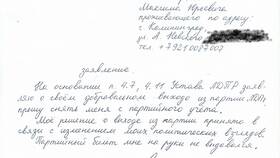 Максима Юревича
проживающего по адресу:
г. Калининград
ул. А. Невского
тел +79210077007
заявление.
На основание п. 4.7, 4.11 Устава ЛДПР заяв-
ляю о своём добровольном выходе из партии ЛДПР,
прошу снять меня с партийного учёта.
Моё решение о выходе из партии принято в
связи с изменением моих политических взглядов.
Партийный билет мне на руки не выдавался.